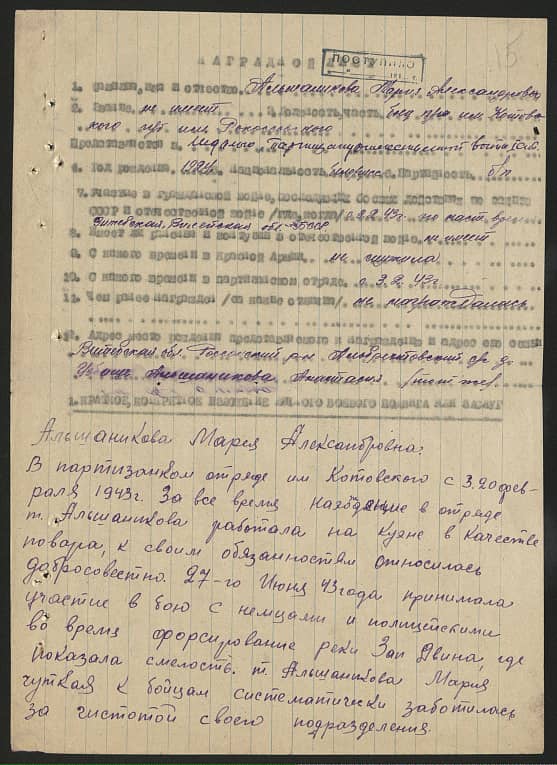 15
НАГРАДНОЙ
ПОСТУПИЛО
1. Фамилия, имя и отчество. Альшаникова Мария Александровна
2. Звание. не имеет 3. Должность, часть. им. Котовс
кого им. Рокоссовского
Представляется к медалью Партизану отечественной войны
4. Год рождения. 1924 Национальность Партийность б/п
7. Участие в гражданской войне, последующих боевых действиях по защите
СССР и отечественной войне /где, когда/ с 3.2.43г. по наст. время
Витебская, обл. БССР
8. Имеет ли ранения и контузии в отечественной войне. не имеет
9. С какого времени в Красной Армии. не служила
10. С какого времени в партизанском отряде. с 3.2.43г.
11. Чем ранее награжден /за какие отличия/ не награждалась
12. Адрес место рождения представляемого к награждению и адрес его семьи
Витебская обл. Россонский р-н
Альшаникова Анастасия
1. КРАТКОЕ, КОНКРЕТНОЕ ИЗЛОЖЕНИЕ ЛИЧНОГО БОЕВОГО ПОДВИГА ИЛИ ЗАСЛУГ
Альшаникова Мария Александровна:
В партизанком отряде им Котовского с 3.20 фев-
раля 1943г. За все время нахождение в отряде
т. Альшаникова работала на кухне в качестве
повара, к своим обязанностям относилась
добросовестно. 27-го Июня 43 года принимала
участие в бою с немцами и полицейскими
во время форсирование реки Зап Двина, где
показала смелость. т. Альшаникова Мария
чуткая к бойцам систематически заботилась
за чистотой своего подразделения.